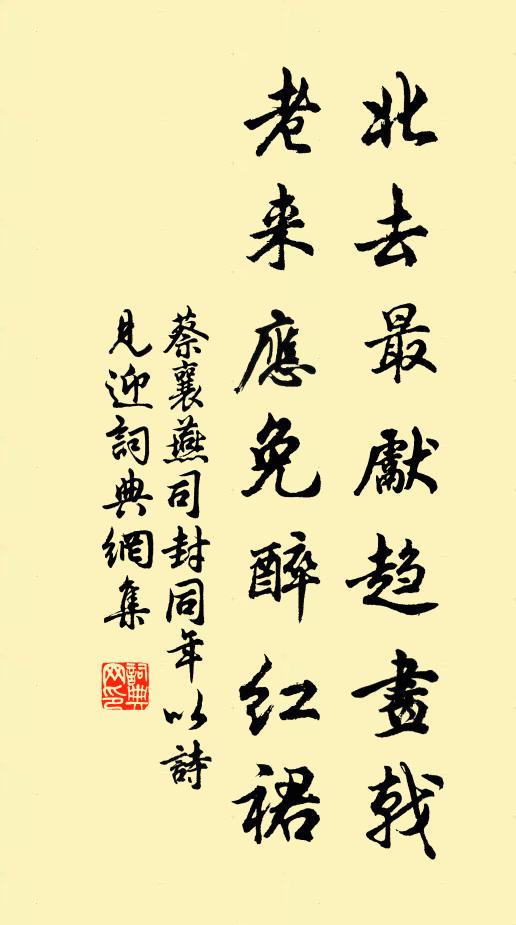 北去最獻趨畫戟
老来應免醉紅裙
蔡襄燕司封同年以詩
見迎詞典網集
詞典网印